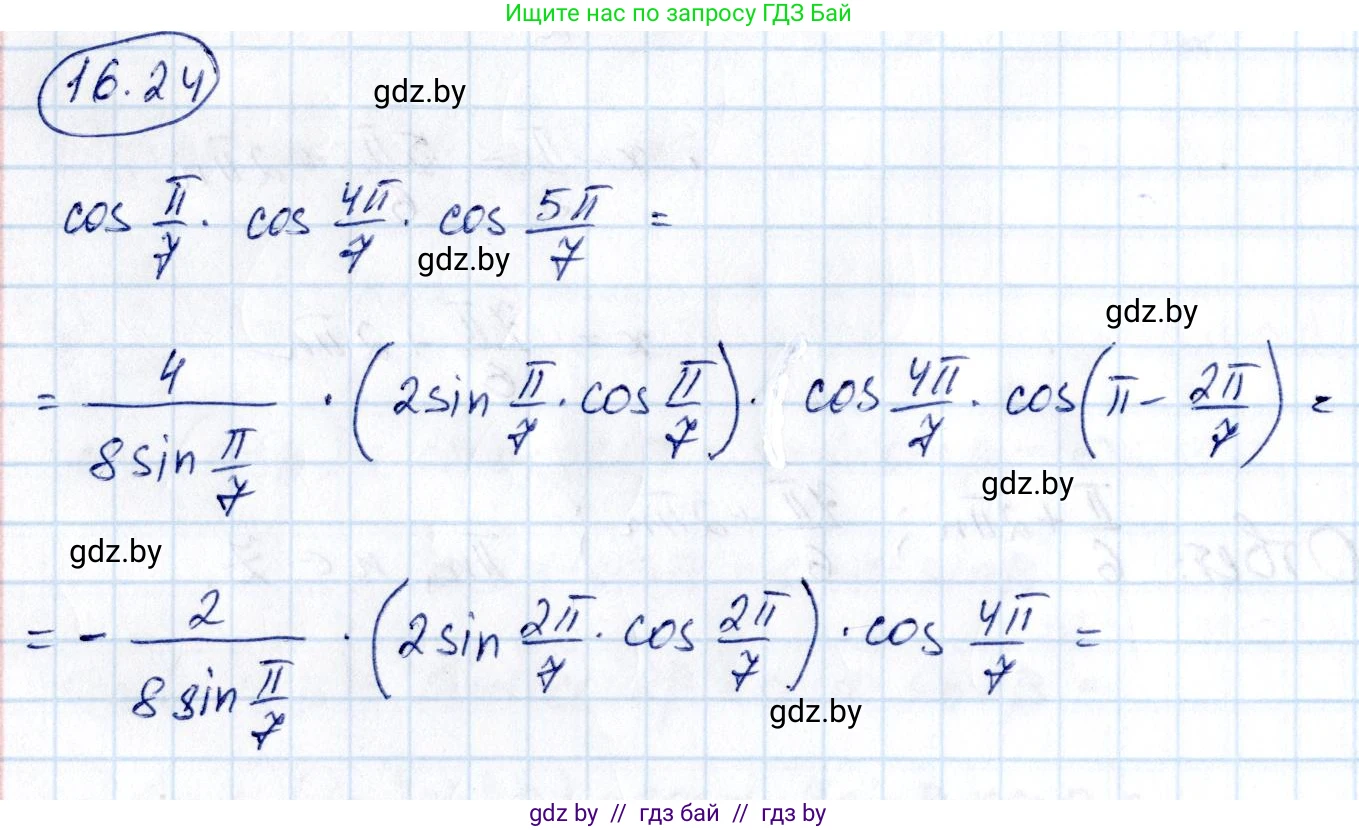 Ищите нас по запросу ГДЗ Бай
16.24
gdz.by
cos π/7 · cos 4π/7 · cos 5π/7 =
gdz.by
gdz.by
= 4/(8sin π/7) · (2sin π/7 · cos π/7) · cos 4π/7 · cos(π - 2π/7) =
gdz.by
gdz.by
= - 2/(8sin π/7) · (2sin 2π/7 · cos 2π/7) · cos 4π/7 =
gdz.by
gdz.by // гдз бай // гдз by